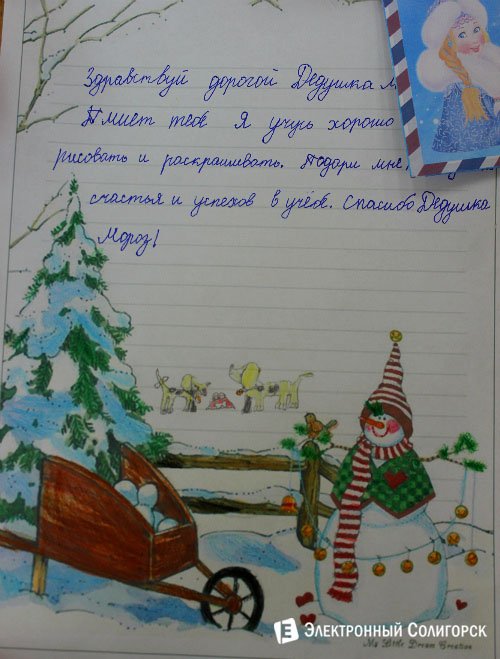 Здравствуй дорогой Дедушка М
Пишет тебе Я учусь хорошо
рисовать и раскрашивать. Подари мне,
счастья и успехов в учёбе. Спасибо Дедушка
Мороз!
My Little Dream Creation
Е Электронный Солигорск